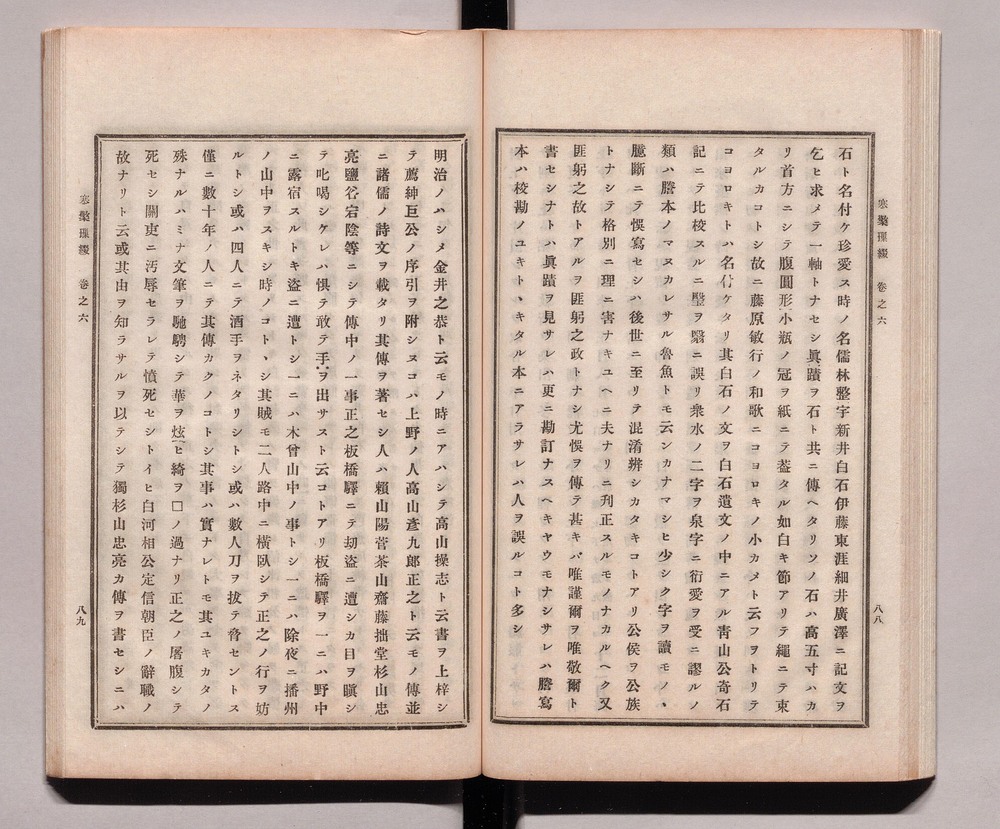 石ト名付ケ珍愛ス時ノ名儒林整宇新井白石伊藤東涯細井廣澤ニ記文ヲ
乞ヒ求メテ一軸トナセシ眞蹟ヲ石ト共ニ傳ヘタリソノ石ハ高五寸ハカ
リ首方ニシテ腹圓形小瓶ノ冠ヲ紙ニテ蓋タル如白キ節アリテ繩ニテ束
タルカコトシ故ニ藤原敏行ノ和歌ニコヨロキノ小カメト云フヲトリテ
コヨロキトハ名付ケタリ其白石ノ文ヲ白石遺文ノ中ニアル靑山公奇石
記ニテ比校スルニ璺ヲ翳ニ誤リ衆水ノ二字ヲ泉字ニ衍愛ヲ受ニ謬ルノ
類ハ謄本ノマヌカレサル魯魚トモ云ンカナマシヒ少シク字ヲ讀モノヽ
臆斷ニテ悞寫セシハ後世ニ至リテ混淆辨シカタキコトアリ公侯ヲ公族
トナシテ格別ニ理ニ害ナキユヘニ夫ナリニ刋正スルモノナカルヘク又
匪躬之故トアルヲ匪躬之政トナシ尤悞ヲ傳テ甚キハ唯謹爾ヲ唯敬爾ト
書セシナトハ眞蹟ヲ見サレハ更ニ勘訂ナスヘキヤウモナシサレハ謄寫
本ハ校勘ノユキトヽキタル本ニアラサレハ人ヲ誤ルコト多シ
卷之六
八八
明治ノハシメ金井之恭ト云モノ時ニアハシテ高山操志ト云書ヲ上梓シ
テ薦紳巨公ノ序引ヲ附シヌコハ上野ノ人高山彥九郎正之ト云モノ傳並
ニ諸儒ノ詩文ヲ載タリ其傳ヲ著セシ人ハ賴山陽菅茶山齋藤拙堂杉山忠
亮鹽谷宕陰等ニシテ傳中ノ一事正之板橋驛ニテ刧盜ニ遭シカ目ヲ瞋シ
テ叱喝シケレハ惧テ敢テ手ヲ出サスト云コトアリ板橋驛ヲ一ニハ野中
ニ露宿スルトキ盜ニ遭トシ一ニハ木曾山中ノ事トシ一ニハ除夜ニ播州
ノ山中ヲスキシ時ノコトヽシ其賊モ二人路中ニ橫臥シテ正之ノ行ヲ妨
ルトシ或ハ四人ニテ酒手ヲネタリシトシ或ハ數人刀ヲ拔テ脅セントス
僅ニ數十年ノ人ニテ其傳カクノコトシ其事ハ實ナレトモ其ユキカタノ
殊ナルハミナ文筆ヲ馳騁シテ華ヲ炫ヒ綺ヲ□ノ過ナリ正之ノ屠腹シテ
死セシ關吏ニ汚辱セラレテ憤死セシトイヒ白河相公定信朝臣ノ辭職ノ
故ナリト云或其由ヲ知ラサルヲ以テシテ獨杉山忠亮カ傳ヲ書セシニハ
卷之六
八九